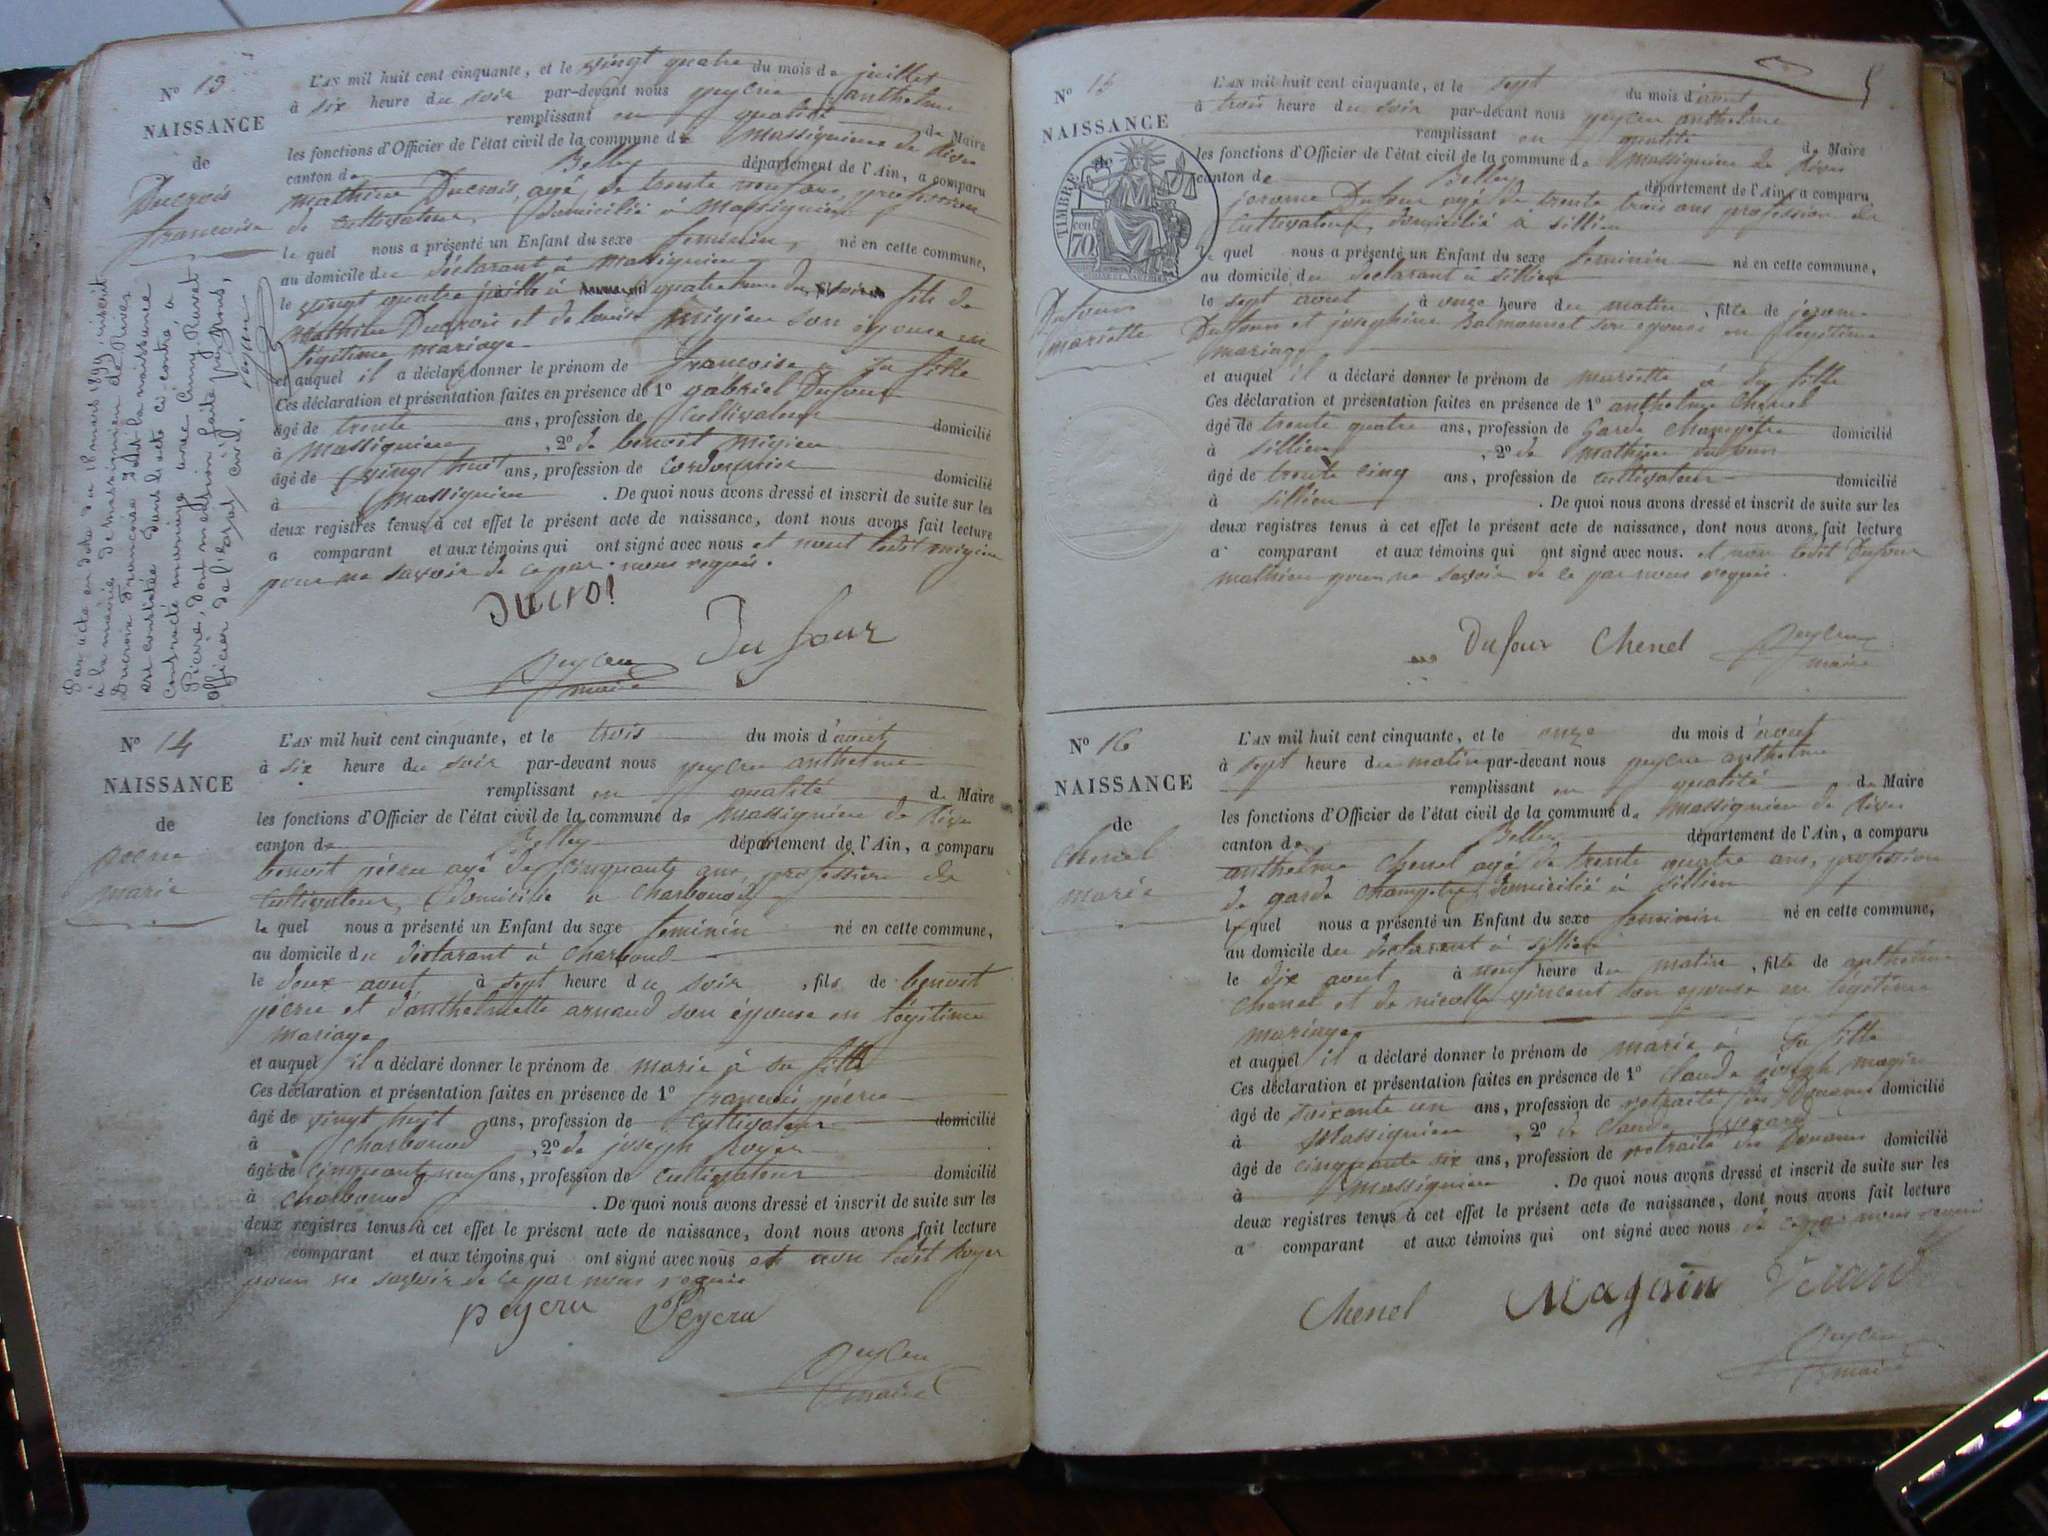 N° 13
NAISSANCE
de
Ducrois
francoise
L'AN mil huit cent cinquante, et le vingt quatre du mois de juillet
à six heure du soir par-devant nous peycru anthelme
remplissant en qualité de Maire
les fonctions d'Officier de l'état civil de la commune de Massignieu de Rives
canton de Belley département de l'Ain, a comparu
mathieu Ducrois, agé de trente neuf ans, profession
de cultivateur, domicilié à Massignieu
le quel nous a présenté un Enfant du sexe feminin, né en cette commune,
au domicile du déclarant à Massignieu
le vingt quatre juillet à quatre heure du fils de
mathieu Ducrois et de louise migieu son épouse en
légitime mariage
et auquel il a déclaré donner le prénom de francoise a sa fille
Ces déclaration et présentation faites en présence de 1° gabriel Dufour
âgé de trente ans, profession de Cultivateur domicilié
à Massignieu, 2° de benoit migieu
âgé de vingt huit ans, profession de cordonnier domicilié
à Massignieu. De quoi nous avons dressé et inscrit de suite sur les
deux registres tenus à cet effet le présent acte de naissance, dont nous avons fait lecture
a comparant et aux témoins qui ont signé avec nous et nont ledit migieu
pour ne savoir de ce par nous requis.
Ducroi
Dufour
Peycru
maire
Par acte en date du 18 mars 1899, inscrit
à la mairie de Massignieu de Rives
Ducrois Françoise, dont la naissance
est constatée dans l'acte ci contre, a
contracté mariage avec Cuny Ravet
Pierre, dont mention faite par nous,
Officier de l'état civil,
N° 14
NAISSANCE
de
pecru
marie
L'AN mil huit cent cinquante, et le trois du mois d'aout
à six heure du soir par-devant nous peycru anthelme
remplissant en qualité de Maire
les fonctions d'Officier de l'état civil de la commune de Massignieu de Rives
canton de Belley département de l'Ain, a comparu
benoit pécru agé de cinquante ans, profession de
Cultivateur, domicilié a Charbonod
le quel nous a présenté un Enfant du sexe feminin né en cette commune,
au domicile du déclarant à Charbonod
le deux aout à sept heure du soir, fils de benoit
pécru et d'anthelmette arnaud son épouse en légitime
mariage
et auquel il a déclaré donner le prénom de marie à sa fille
Ces déclaration et présentation faites en présence de 1° francois pécru
âgé de vingt huit ans, profession de Cultivateur domicilié
à Charbonod, 2° de joseph Royer
âgé de cinquante neuf ans, profession de cultivateur domicilié
à Charbonod. De quoi nous avons dressé et inscrit de suite sur les
deux registres tenus à cet effet le présent acte de naissance, dont nous avons fait lecture
a comparant et aux témoins qui ont signé avec nous et non ledit Royer
pour ne savoir de ce par nous requis
peycru Peycru
Peycru
maire
N° 15
NAISSANCE
de
TIMBRE
70
Dufour
mariette
L'AN mil huit cent cinquante, et le sept du mois d'aout
à trois heure du soir par-devant nous peycru anthelme
remplissant en qualité de Maire
les fonctions d'Officier de l'état civil de la commune de Massignieu de Rives
canton de Belley département de l'Ain, a comparu
jerome Dufour agé de trente trois ans profession de
Cultivateur, domicilié à Sillieu
le quel nous a présenté un Enfant du sexe feminin né en cette commune,
au domicile du déclarant à Sillieu
le sept aout à onze heure du matin, fille de jerome
Dufour et josephine Balmonnet son epouse en légitime
mariage
et auquel il a déclaré donner le prénom de mariette à sa fille
Ces déclaration et présentation faites en présence de 1° anthelme Chenel
âgé de trente quatre ans, profession de Garde Champetre domicilié
à Sillieu, 2° de mathieu dufour
âgé de trente cinq ans, profession de cultivateur domicilié
à Sillieu. De quoi nous avons dressé et inscrit de suite sur les
deux registres tenus à cet effet le présent acte de naissance, dont nous avons fait lecture
a comparant et aux témoins qui ont signé avec nous. et non ledit Dufour
mathieu pour ne savoir de ce par nous requis.
Dufour Chenel Peycru
maire
N° 16
NAISSANCE
de
Chenel
marie
L'AN mil huit cent cinquante, et le onze du mois d'aout
à sept heure du matin par-devant nous peycru anthelme
remplissant en qualité de Maire
les fonctions d'Officier de l'état civil de la commune de Massignieu de Rives
canton de Belley département de l'Ain, a comparu
anthelme Chenel agé de trente quatre ans, profession
de garde champetre, domicilié à Sillieu
le quel nous a présenté un Enfant du sexe feminin né en cette commune,
au domicile du declarant à Sillieu
le dix aout à neuf heure du matin, fille de anthelme
Chenel et de nicolle vincent son epouse en légitime
mariage
et auquel il a déclaré donner le prénom de marie à sa fille
Ces déclaration et présentation faites en présence de 1° Claude joseph magin
âgé de soixante un ans, profession de retraité des Douanes domicilié
à Massignieu, 2° de Claude
âgé de cinquante six ans, profession de retraité des Douanes domicilié
à Massignieu. De quoi nous avons dressé et inscrit de suite sur les
deux registres tenus à cet effet le présent acte de naissance, dont nous avons fait lecture
a comparant et aux témoins qui ont signé avec nous de ce par nous requis
Chenel
Peycru
maire